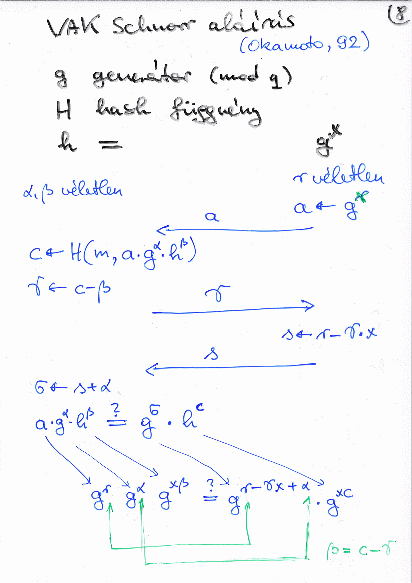 (8
VAK Schnorr aláírás
(Okamoto, 92)
g generátor (mod q)
H hash függvény
h = g^x
r véletlen
α, β véletlen
a ← g^r
a
c ← H(m, a·g^α·h^β)
γ ← c-β
γ
s ← r-γ·x
s
σ ← s+α
a·g^α·h^β ≟ g^σ · h^c
g^r g^α g^xβ ≟ g^r-γx+α · g^xc
β = c-γ